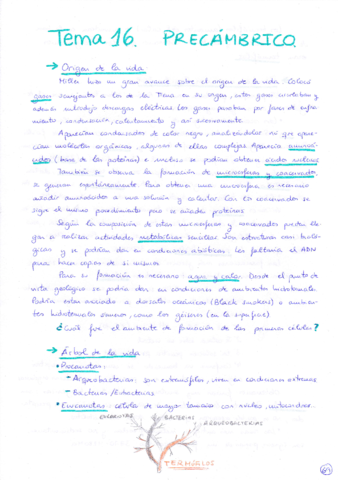 Tema 16. PRECÁMBRICO.
→ Origen de la vida
Miller hizo un gran avance sobre el origen de la vida. Colocó
gases semejantes a los de la Tierra en su origen, estos gases circulaban y
además introdujo descargas eléctricas. Los gases pasaban por fases de enfria-
miento, condensación, calentamiento y así sucesivamente.
Aparecían condensados de color negro, analizándolos vió que apare-
cían moléculas orgánicas, algunas de ellas complejas. Aparecía aminoá-
cidos (base de las proteínas) e incluso se podían obtener ácidos nucleicos
También se observa la formación de microesferas y coacervados,
se generan espontáneamente. Para obtener una microesfera es necesario
añadir aminoácidos a una solución y calentar. Con los coacervados se
sigue el mismo procedimiento pero se añaden proteínas.
Según la composición de estas microesferas y coacervados pueden lle-
gar a realizar actividades metabólicas sencillas. Son estructuras casi bioló-
gicas y se podrían dar en condiciones abióticas. Les faltaría el ADN
para hacer copias de sí mismos.
Para su formación es necesario: agua y calor. Desde el punto de
vista geológico se podría dar en condiciones de ambiente hidrotermales.
Podría estar asociado a dorsales oceánicas (Black smokers) o ambien-
tes hidrotermales someros, como los géiseres (en la superficie)
¿Cuál fue el ambiente de formación de las primeras células?
→ Árbol de la vida
• Procariotas:
- Arqueobacterias: son extremófilos, viven en condiciones extremas
- Bacterias / Eubacterias
• Eucariotas: células de mayor tamaño con núcleo, mitocondrias...
EUCARIOTAS
BACTERIAS
ARQUEOBACTERIAS
TERMÓFILOS